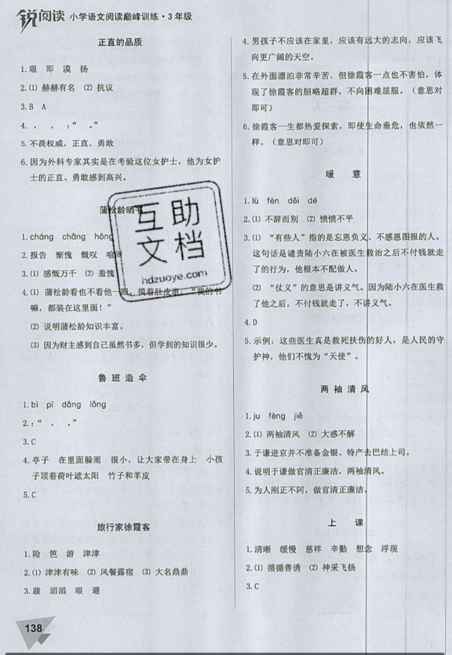 锐阅读 小学语文阅读巅峰训练·3年级
正直的品质
1. 艰 即 漠 扬
2. (1) 赫赫有名 (2) 抗议
3. B A
4. , , :“ 。”
5. 不畏权威,正直、勇敢
6. 因为外科专家其实是在考验这位女护士,他为女护
士的正直、勇敢感到高兴。
蒲松龄晒书
1. cháng chāng hōng
2. 报告 惭愧 慨叹
3. (1) 感慨万千 (2) 羞愧
4. (1) 蒲松龄看也不看他一眼,摸着肚皮道:“我的书
嘛,都装在这里面!”
(2) 说明蒲松龄知识丰富。
(3) 因为财主感到自己虽然书多,但学到的知识很少。
鲁班造伞
1. bì pī dǎng lǒng
2. :“ , 。”
3. C
4. 亭子 在里面躲雨 很小,让大家带在身上 小孩
子顶着荷叶遮太阳 竹子和羊皮
5. C
旅行家徐霞客
1. 险 笆 游 津津
2. (1) 津津有味 (2) 风餐露宿 (3) 大名鼎鼎
3. 跋 滔滔 艰 避
138
4. 男孩子不应该在家里,应该有远大的志向,应该飞
向更广阔的天空。
5. 在外面漂泊非常辛苦,但徐霞客一点也不害怕,体
现了徐霞客的胆略超群,不向困难屈服。(意思对
即可)
6. 徐霞客一生都热爱探索,即使生命垂危,也依然一
样。(意思对即可)
暖意
1. lù fèn dǎi dé
2. (1) 不辞而别 (2) 愤愤不平
3. (1) “有些人”指的是忘恩负义、不感恩图报的人。
这句话是谴责陆小六在被医生救治之后不付钱就走
了的行为,他根本不配做人。
(2) “仗义”的意思是讲义气。因为陆小六在医生救
了他之后,不付钱就走了,不讲义气。
4. D
5. 示例:这些医生真是救死扶伤的好人,是人民的守
护神,他们不愧为“天使”。
两袖清风
1. ju fèng jiē
2. (1) 两袖清风 (2) 大惑不解
3. 于谦进京并不准备金银、特产去巴结上司。
4. 说明于谦做官清正廉洁,两袖清风。
5. 为人刚正不阿,做官清正廉洁。
上课
1. 清晰 缓慢 慈祥 辛勤 想念 浮现
2. (1) 循循善诱 (2) 神采飞扬
3. C
互助
文档
hdzuoye.com